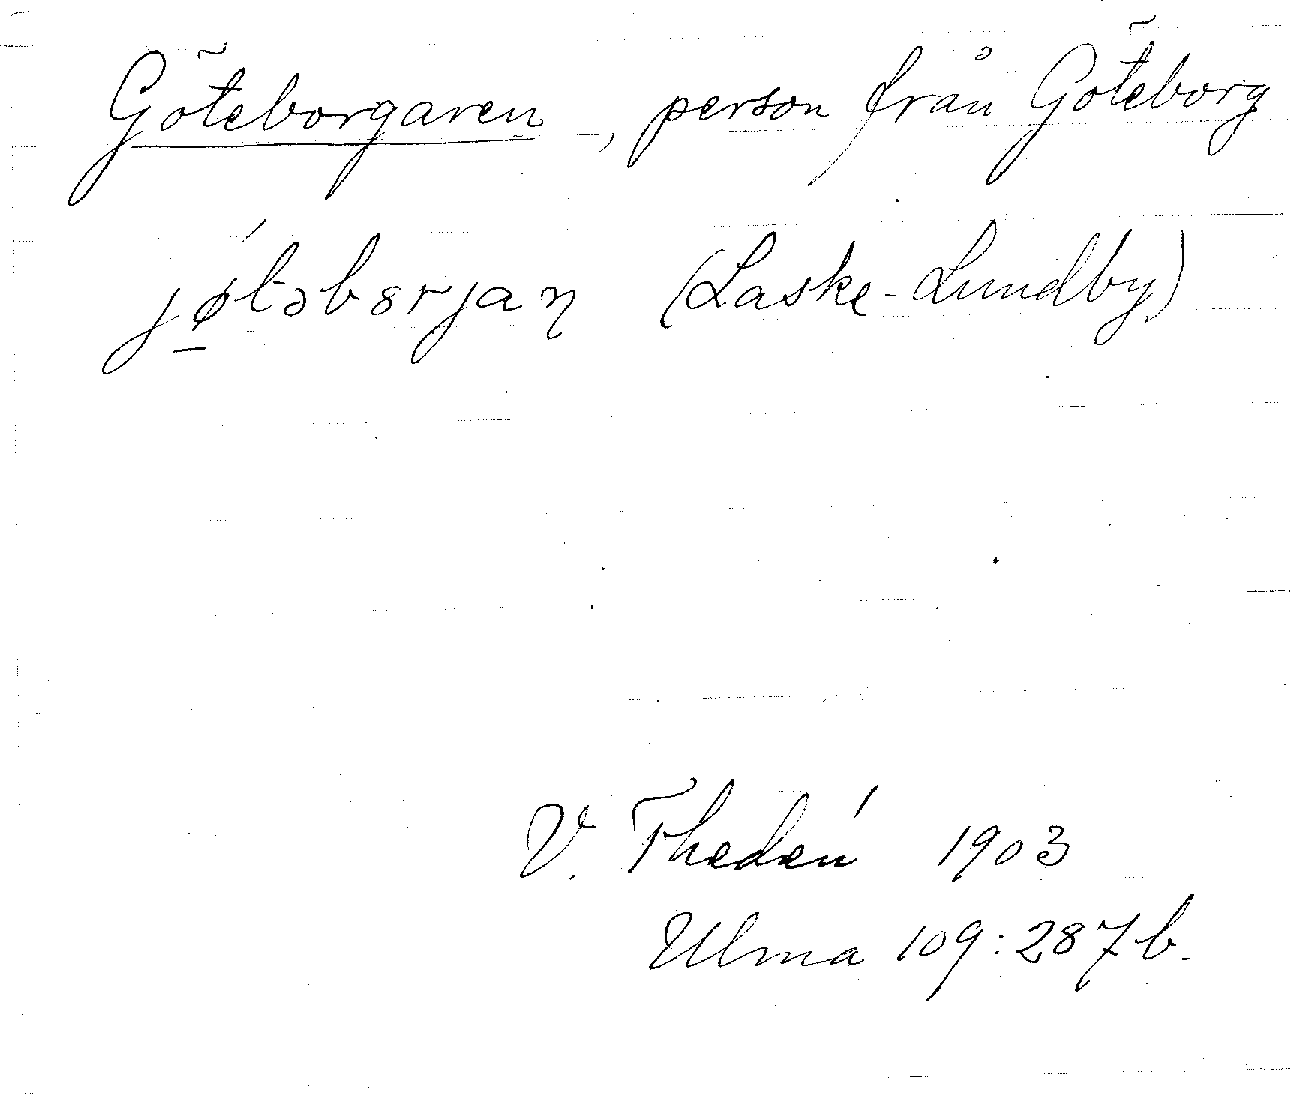 Göteborgaren, person från Göteborg
jǿ̱təbɵrjaɳ (Laske-Lundby)
V. Thedén 1903
Ulma 109:287b.